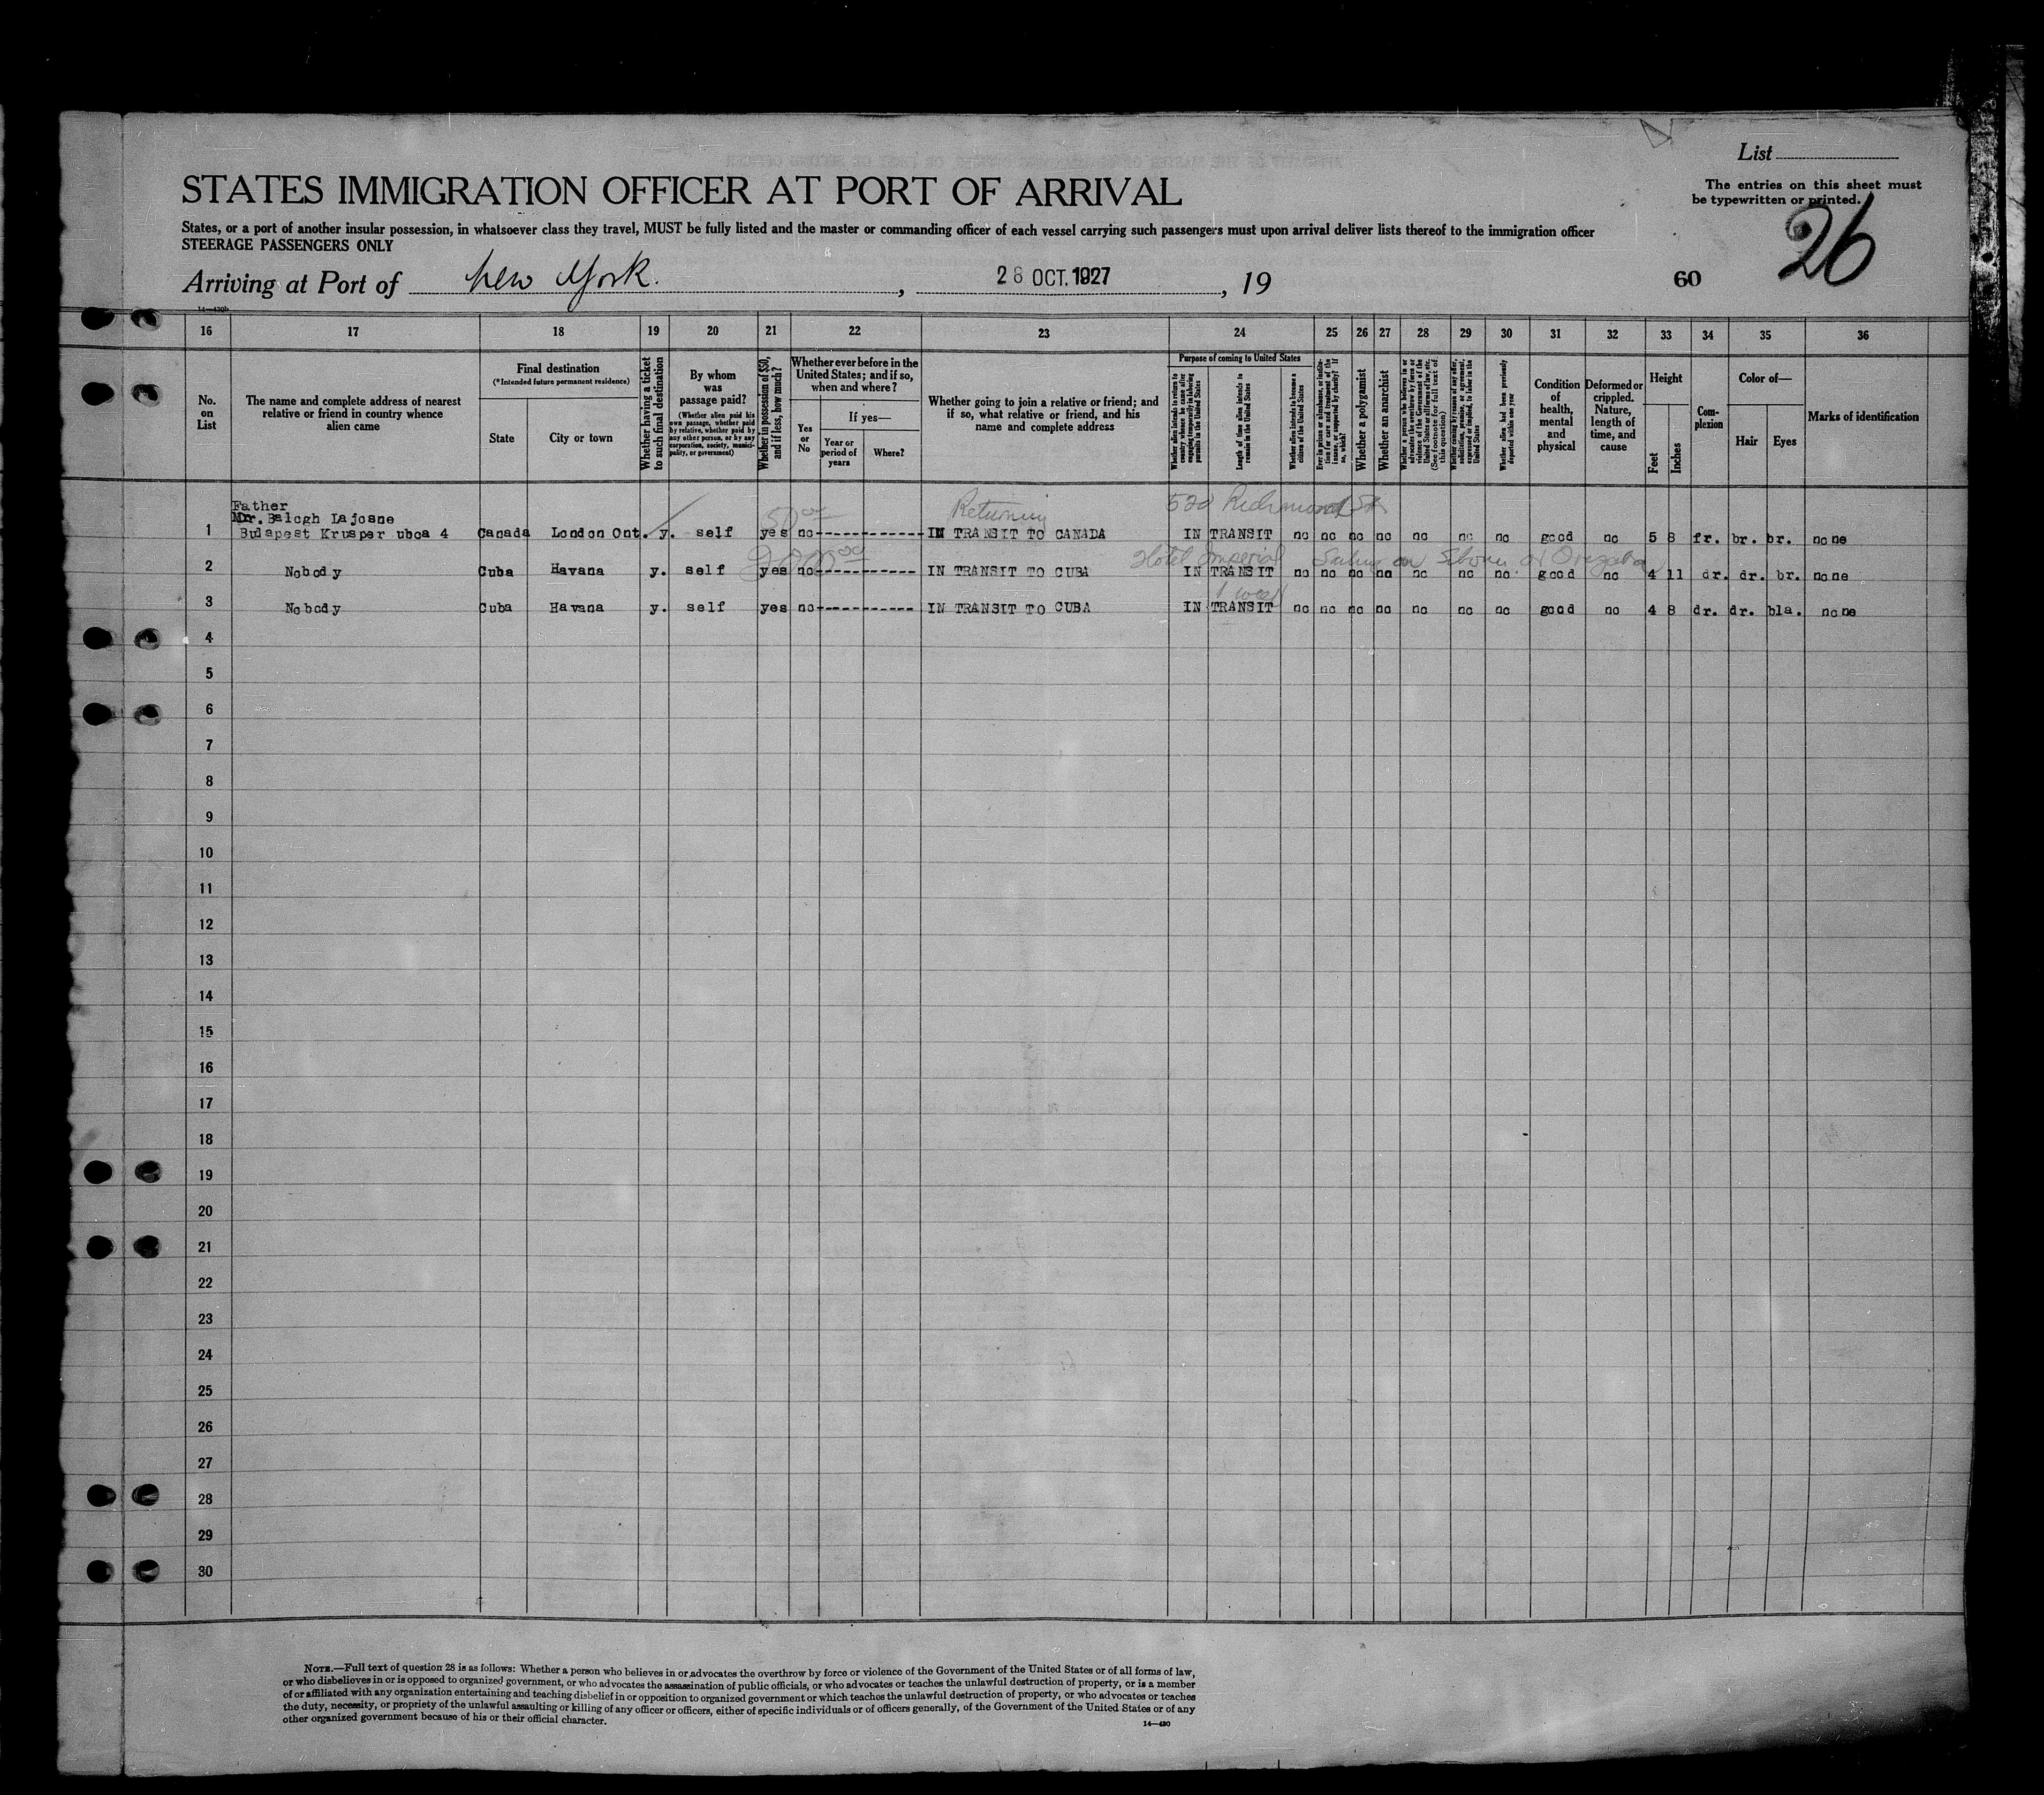 List
The entries on this sheet must
be typewritten or printed.
26
STATES IMMIGRATION OFFICER AT PORT OF ARRIVAL
States, or a port of another insular possession, in whatsoever class they travel, MUST be fully listed and the master or commanding officer of each vessel carrying such passengers must upon arrival deliver lists thereof to the immigration officer
STEERAGE PASSENGERS ONLY
Arriving at Port of New York. , 28 OCT. 1927 , 19
60
14—430b
16 17 18 19 20 21 22 23 24 25 26 27 28 29 30 31 32 33 34 35 36
No. on List
The name and complete address of nearest relative or friend in country whence alien came
Final destination
(*Intended future permanent residence)
State
City or town
Whether having a ticket to such final destination
By whom was passage paid?
(Whether alien paid his own passage, whether paid by relative, whether paid by any other person, or by any corporation, society, municipality, or government)
Whether in possession of $50, and if less, how much?
Whether ever before in the United States; and if so, when and where?
Yes or No
If yes—
Year or period of years
Where?
Whether going to join a relative or friend; and if so, what relative or friend, and his name and complete address
Purpose of coming to United States
Whether alien intends to return to country whence he came after engaging temporarily in laboring pursuits in the United States
Length of time alien intends to remain in the United States
Whether alien intends to become a citizen of the United States
Ever in prison or almshouse, or institution for care and treatment of the insane, or supported by charity? If so, which?
Whether a polygamist
Whether an anarchist
Whether a person who believes in or advocates the overthrow by force or violence of the Government of the United States or all forms of law, etc. (See footnote for full text of this question)
Whether coming by reason of any offer, solicitation, promise, or agreement, expressed or implied, to labor in the United States
Whether alien had been previously deported within one year
Condition of health, mental and physical
Deformed or crippled. Nature, length of time, and cause
Height
Feet
Inches
Com-plexion
Color of—
Hair
Eyes
Marks of identification
Father
Mr. Balogh Lajosne
Returning 520 Richmond St
50 00
1 Budapest Krusper uboa 4 Canada London Ont. y. self yes no IN TRANSIT TO CANADA IN TRANSIT no no no no no no no good no 5 8 fr. br. br. none
Hotel Imperial
2 Nobody Cuba Havana y. self yes no IN TRANSIT TO CUBA IN TRANSIT no no no no no no no good no 4 11 dr. dr. br. none
1 week
3 Nobody Cuba Havana y. self yes no IN TRANSIT TO CUBA IN TRANSIT no no no no no no no good no 4 8 dr. dr. bla. none
4
5
6
7
8
9
10
11
12
13
14
15
16
17
18
19
20
21
22
23
24
25
26
27
28
29
30
NOTE.—Full text of question 28 is as follows: Whether a person who believes in or advocates the overthrow by force or violence of the Government of the United States or of all forms of law,
or who disbelieves in or is opposed to organized government, or who advocates the assassination of public officials, or who advocates or teaches the unlawful destruction of property, or is a member
of or affiliated with any organization entertaining and teaching disbelief in or opposition to organized government or which teaches the unlawful destruction of property, or who advocates or teaches
the duty, necessity, or propriety of the unlawful assaulting or killing of any officer or officers, either of specific individuals or of officers generally, of the Government of the United States or of any
other organized government because of his or their official character.
14—430